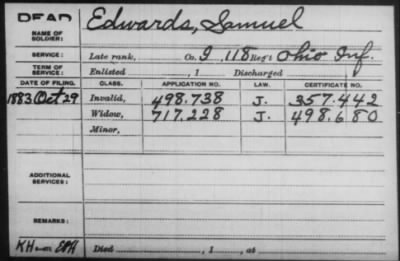 DEAD
NAME OF SOLDIER: Edwards, Samuel
SERVICE: Late rank, Co. G, 118 Reg't Ohio Inf.
TERM OF SERVICE: Enlisted , 1 Discharged
DATE OF FILING. CLASS. APPLICATION NO. LAW. CERTIFICATE NO.
1883 Oct 29 Invalid, 498.738 J. 357.442
Widow, 717.228 J. 498.680
Minor,
ADDITIONAL SERVICES:
REMARKS:
Died , 1 , at